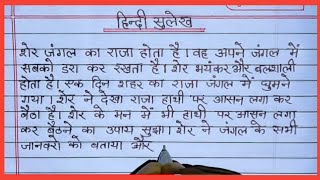 हिन्दी सुलेख
शेर जंगल का राजा होता है। वह अपने जंगल में
सबको डरा कर रखता है। शेर भयंकर और बलशाली
होता है। एक दिन शहर का राजा जंगल में घुमने
गया। शेर ने देखा राजा हाथी पर आसन लगा कर
बैठा है। शेर के मन में भी हाथी पर आसन लगा
कर बैठने का उपाय सुझा। शेर ने जंगल के सभी
जानवरो को बताया और